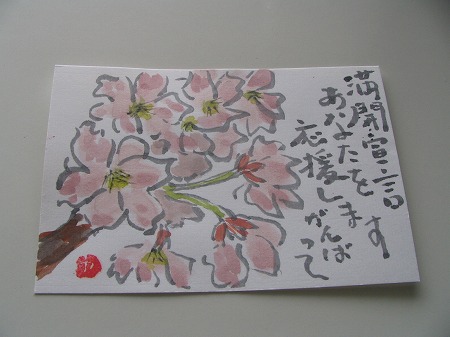 満開宣言
あなたを
応援します
がんばって